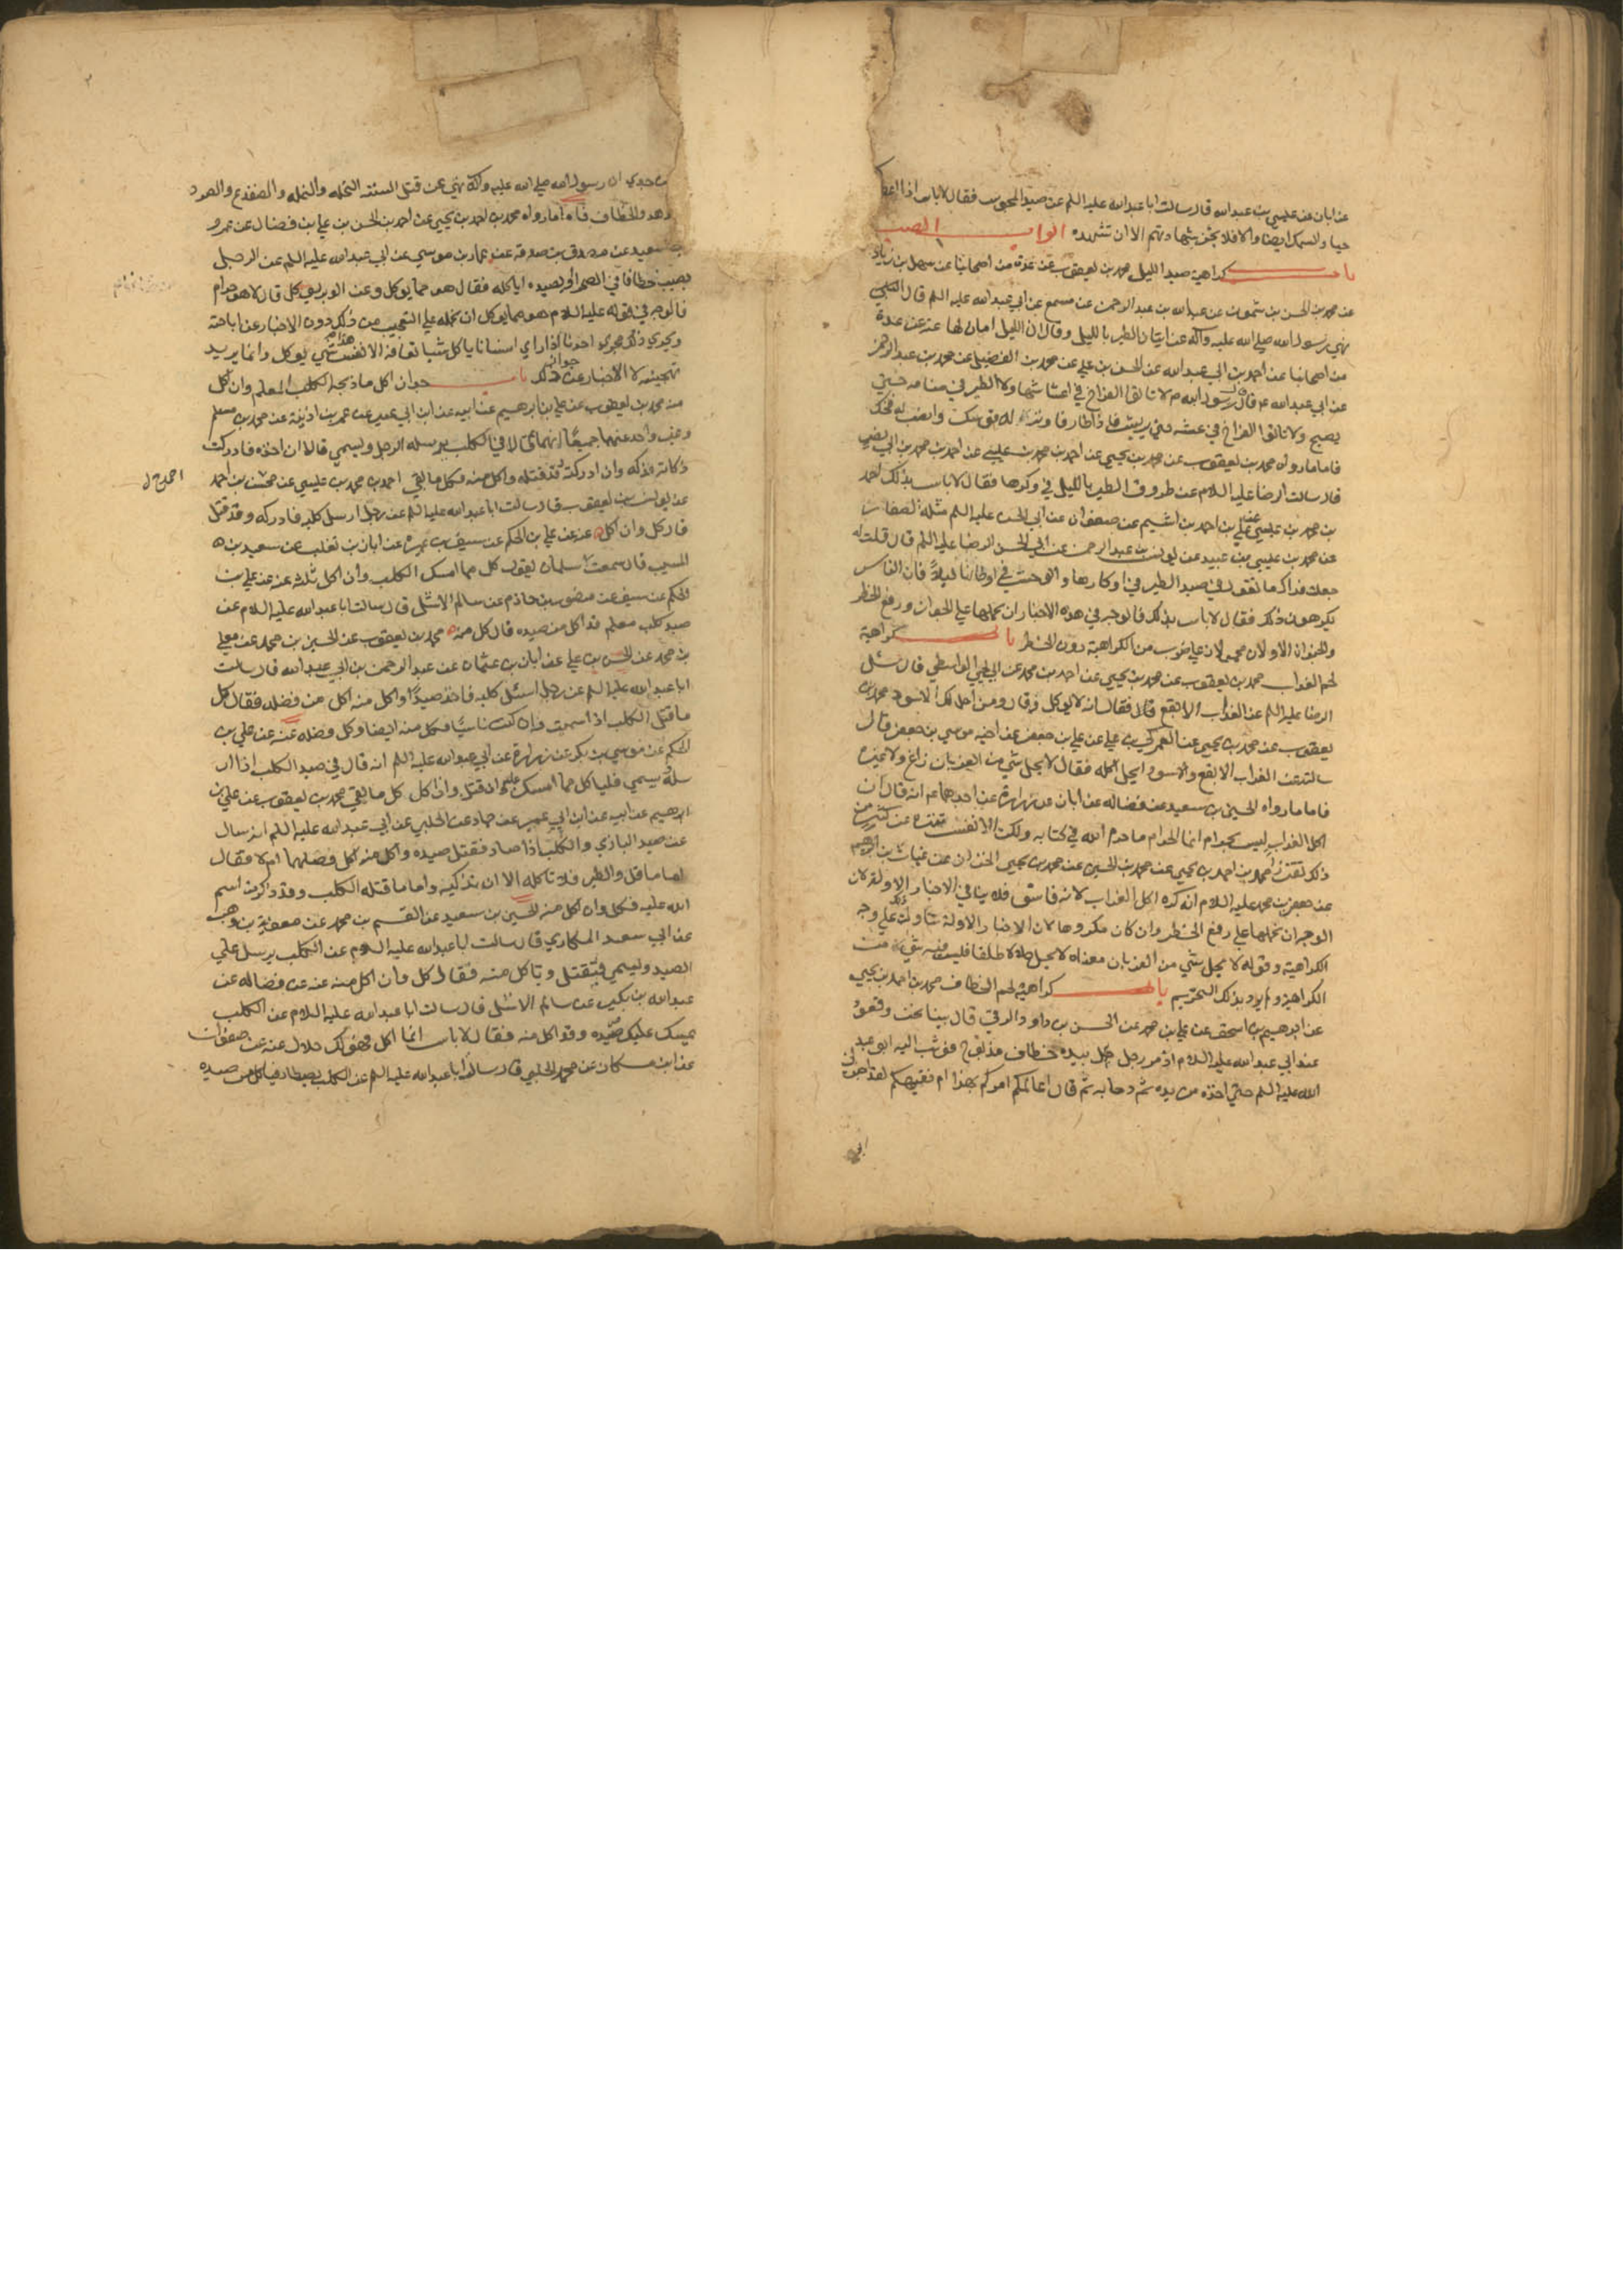 عن ابان عن عيسى بن عبد الله قال سالت ابا عبد الله عليه السلم عن صيد المجوسى فقال لا باس اذا اعطوكه
حيا والسمك ايضا والا فلا تجز شهادتهم الا ان تشهده ابواب الصيد
باب كراهية صيد الليل محمد بن يعقوب عن عدة من اصحابنا عن سهل بن زياد
عن محمد بن الحسن بن شمون عن عبد الله بن عبد الرحمن عن مسمع عن ابي عبد الله عليه السلم قال
نهى رسول الله صلى الله عليه وآله عن اتيان الطير بالليل وقال ان الليل امان لها عنه عن عدة
من اصحابنا عن احمد بن ابي عبد الله عن الحسن بن علي عن محمد بن الفضيل عن محمد بن عبد الرحمن
عن ابي عبد الله ع قال قال رسول الله ص لا تاتوا الفراخ في اعشاشها ولا الطير في منامه حتى
يصبح ولا تاتوا الفراخ في عشه حتى يريش فاذا طار فاوتر له قوسك وانصب له فخك
فاما ما رواه محمد بن يعقوب عن محمد بن يحيى عن احمد بن محمد بن عيسى عن احمد بن محمد بن ابي نصر
قال سالت الرضا عليه السلام عن طروق الطير بالليل في وكرها فقال لا باس بذلك احمد
بن محمد بن عيسى عن علي بن احمد بن اشيم عن صفوان عن ابي الحسن عليه السلم مثله الصفار
عن محمد بن عيسى بن عبيد عن يونس بن عبد الرحمن عن ابي الحسن الرضا عليه السلم قال قلت له
جعلت فداك ما تقول في صيد الطير في اوكارها والوحش في اوطانها ليلا فان الناس
يكرهون ذلك فقال لا باس بذلك فالوجه في هذه الاخبار ان نحملها على الجواز ورفع الحظر
والخبران الاولان محمولان على ضرب من الكراهية دون الحظر باب كراهية
لحم الغراب محمد بن يعقوب عن محمد بن يحيى عن احمد بن محمد عن ابي يحيى الواسطي قال سئل
الرضا عليه السلم عن الغراب الابقع قال فقال انه لا يوكل وقال ومن احل لك الاسود محمد بن
يعقوب عن محمد بن يحيى عن العمركي بن علي عن علي بن جعفر عن اخيه موسى بن جعفر قال
سالته عن الغراب الابقع والاسود ايحل اكله فقال لا يحل شي من الغربان زاغ ولا غيره
فاما ما رواه الحسين بن سعيد عن فضالة عن ابان عن زرارة عن احدهما ع انه قال ان
اكل الغراب ليس بحرام انما الحرام ما حرم الله في كتابه ولكن الانفس تتنزه عن كثير من
ذلك تقززا محمد بن احمد بن يحيى عن محمد بن الحسين عن محمد بن يحيى الخزاز عن غياث بن ابرهيم
عن جعفر بن محمد عليه السلام انه كره اكل الغراب لانه فاسق فلا ينافي الاخبار الاولة لان
الوجه ان نحملها على رفع الحظر وان كان مكروها لان الاخبار الاولة تناولت ذلك على وجه
الكراهية وقوله لا يحل شي من الغربان معناه لا يحل حلالا طلقا فليس فيه شيء من
الكراهية ولم يرد بذلك التحريم باب كراهية لحم الخطاف محمد بن احمد بن يحيى
عن ابرهيم بن اسحق عن علي بن محمد عن الحسن بن داود الرقي قال بينا نحن وقوف
عند ابي عبد الله عليه السلام اذ مر رجل بيده خطاف مذبوح فوثب اليه ابو عبد
الله عليه السلم حتى اخذه من يده ثم دحا به ثم قال اعالمكم امركم بهذا ام فقيهكم لقد اخبرني
ابي
عن جدي ان رسول الله صلى الله عليه وآله نهى عن قتل الستة النحله والنمله والضفدع والصرد
والهدهد والخطاف فاما ما رواه محمد بن احمد بن يحيى عن احمد بن الحسن بن علي بن فضال عن عمرو
بن سعيد عن مصدق بن صدقة عن عمار بن موسى عن ابي عبد الله عليه السلم عن الرجل
يصيب خطافا في الصحراء او يصيده اياكله فقال هو مما يوكل وعن الوبر يوكل قال لا هو حرام
فالوجه في قوله عليه السلام هو مما يوكل ان نحمله على التعجب من ذلك دون الاخبار عن اباحته
ويجري ذلك مجرى احدنا اذا راي انسانا ياكل شيا تعافه الانفس هذا شي يوكل وانما يريد
تهجينه لا الاخبار عن جواز ذلك باب جواز اكل ما ذبحه الكلب المعلم وان اكل
منه محمد بن يعقوب عن علي بن ابرهيم عن ابيه عن ابن ابي عمير عن عمر بن اذينة عن محمد بن مسلم
وغير واحد عنهما جميعا انهما قالا في الكلب يرسله الرجل ويسمي قالا ان اخذه فادركت
ذكاته فذكه وان ادركته قد قتله واكل منه فكل ما بقي احمد بن محمد بن عيسى عن محسن بن احمد
عن يونس بن يعقوب قال سالت ابا عبد الله عليه السلم عن رجل ارسل كلبه فادركه وقد قتل
قال كل وان اكل عنه عن علي بن الحكم عن سيف بن عميرة عن ابان بن تغلب عن سعيد بن
المسيب قال سمعت سلمان يقول كل مما امسك الكلب وان اكل ثلثه عنه عن علي بن
الحكم عن سيف عن منصور بن حازم عن سالم الاشل قال سالت ابا عبد الله عليه السلام عن
صيد كلب معلم قد اكل من صيده قال كل منه محمد بن يعقوب عن الحسين بن محمد عن معلى
بن محمد عن الحسن بن علي عن ابان بن عثمان عن عبد الرحمن بن ابي عبد الله قال سالت
ابا عبد الله عليه السلم عن رجل ارسل كلبه فاخذ صيدا واكل منه اكل من فضله فقال كل
ما قتل الكلب اذا سميت فان كنت ناسيا فكل منه ايضا وكل فضله عنه عن علي بن
الحكم عن موسى بن بكر عن زرارة عن ابي عبد الله عليه السلم انه قال في صيد الكلب اذا ار
سله يسمي فلياكل مما امسك عليه وان قتل وان اكل كل ما بقي محمد بن يعقوب عن علي بن
ابرهيم عن ابيه عن ابن ابي عمير عن حماد عن الحلبي عن ابي عبد الله عليه السلم انه سال
عن صيد البازي والكلب اذا صاد فقتل صيده واكل منه اكل فضلهما ام لا فقال
اما ما قتل والطير فلا تاكله الا ان تذكيه واما ما قتله الكلب وقد ذكرت اسم
الله عليه فكل وان اكل منه الحسين بن سعيد عن القسم بن محمد عن معوية بن وهب
عن ابي سعد المكاري قال سالت ابا عبد الله عليه السلام عن الكلب يرسل على
الصيد ويسمي فيقتل وياكل منه فقال كل وان اكل منه عنه عن فضاله عن
عبد الله بن بكير عن سالم الاشل قال سالت ابا عبد الله عليه السلام عن الكلب
يمسك عليك صيده وقد اكل منه فقال لا باس انما اكل وهو لك حلال عنه عن صفوان
عن ابن مسكان عن محمد الحلبي قال سالت ابا عبد الله عليه السلم عن الكلب يصطاد فياكل من صيده